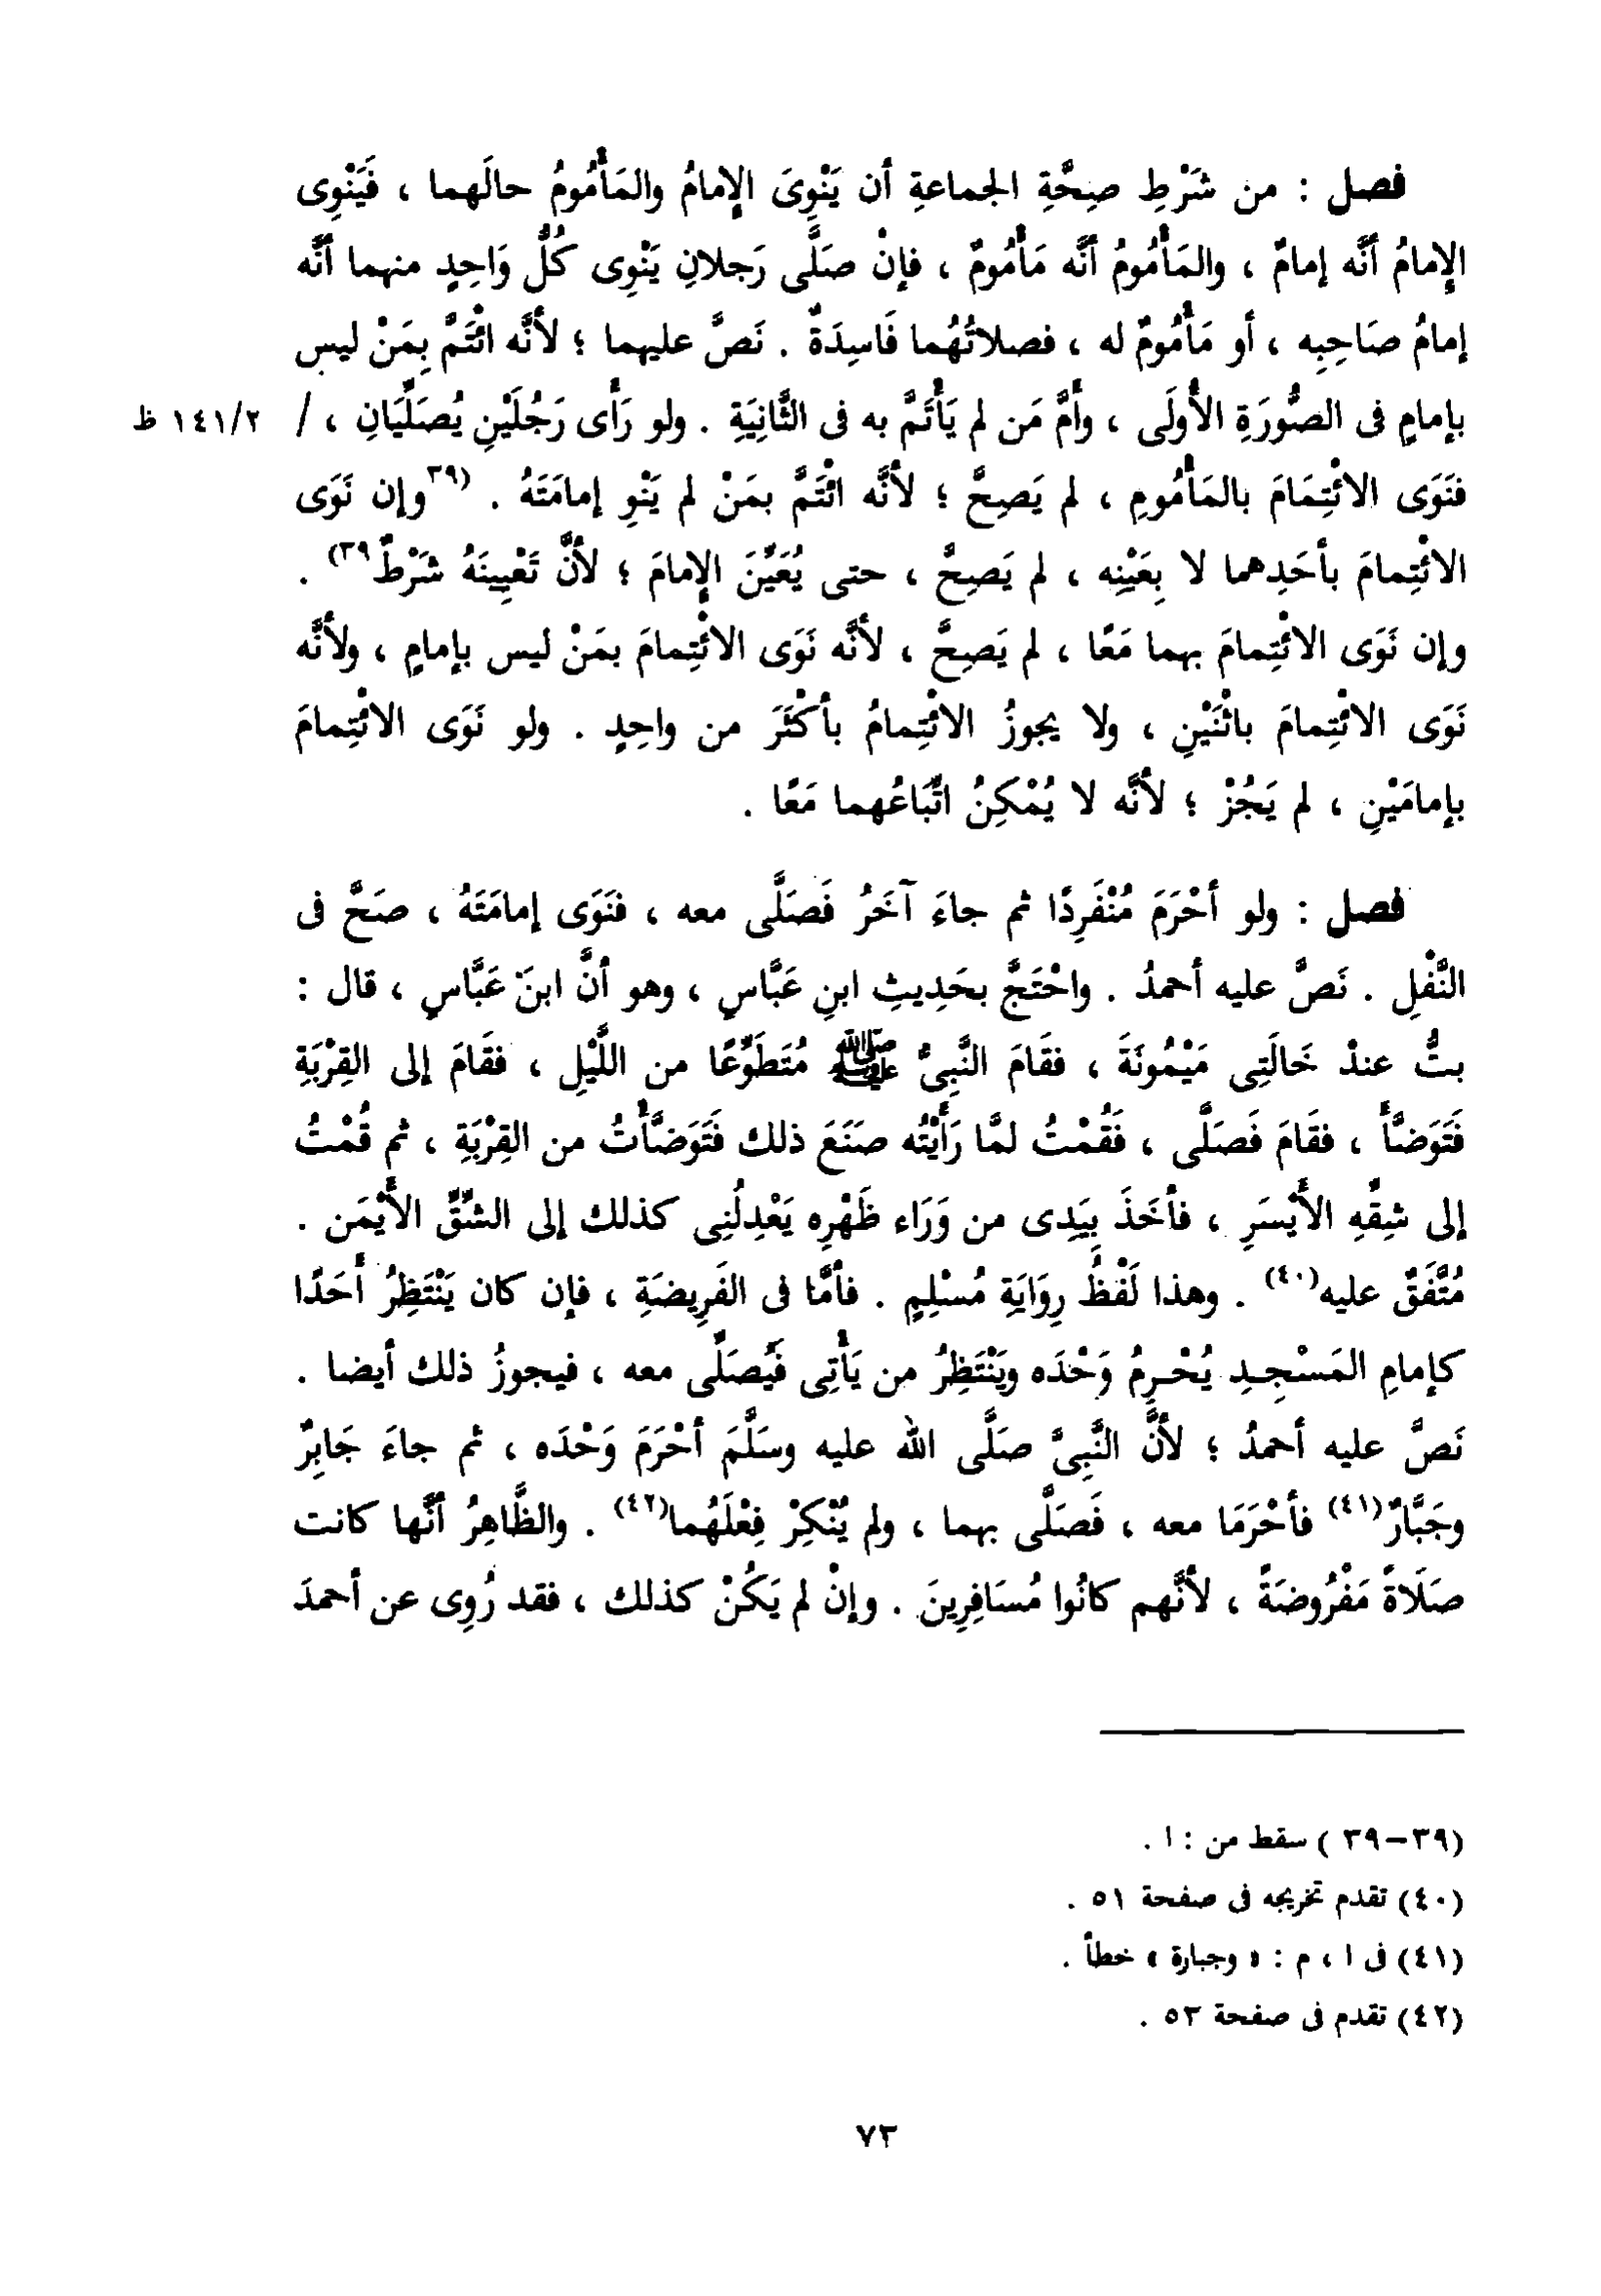 فصل : من شَرْطِ صِحَّةِ الجماعةِ أن يَنْوِىَ الإِمامُ والمَأْمُومُ حالَهما ، فَيَنْوِى
الإِمامُ أنَّه إمامٌ ، والمَأْمُومُ أنَّه مَأْمُومٌ ، فإنْ صَلَّى رَجلانِ يَنْوِى كُلُّ وَاحِدٍ منهما أنَّه
إمامُ صَاحِبِه ، أو مَأْمُومٌ له ، فصلاتُهُما فَاسِدَةٌ . نَصَّ عليهما ؛ لأنَّه ائْتَمَّ بِمَنْ ليس
بإمامٍ فى الصُّورَةِ الأُولَى ، وأمَّ مَن لم يَأْتَمَّ به فى الثَّانِيَةِ . ولو رَأَى رَجُلَيْنِ يُصَلِّيَانِ ، / ١٤١/٢ ظ
فنَوَى الائْتِمَامَ بالمَأْمُومِ ، لم يَصِحَّ ؛ لأنَّه ائْتَمَّ بمَنْ لم يَنْوِ إمامَتَهُ . (٣٩وإن نَوَى
الائْتِمامَ بأحَدِهما لا بِعَيْنِه ، لم يَصِحَّ ، حتى يُعَيِّنَ الإِمامَ ؛ لأنَّ تَعْيِينَهُ شَرْطٌ٣٩) .
وإن نَوَى الائْتِمامَ بهما مَعًا ، لم يَصِحَّ ، لأنَّه نَوَى الائْتِمامَ بمَنْ ليس بإمامٍ ، ولأنَّه
نَوَى الائْتِمامَ باثْنَيْنِ ، ولا يجوزُ الائْتِمامُ بأكْثَرَ من واحِدٍ . ولو نَوَى الائْتِمامَ
بإمامَيْنِ ، لم يَجُزْ ؛ لأنَّه لا يُمْكِنُ اتِّبَاعُهما مَعًا .
فصل : ولو أحْرَمَ مُنْفَرِدًا ثم جاءَ آخَرُ فَصَلَّى معه ، فنَوَى إمامَتَهُ ، صَحَّ فى
النَّفْلِ . نَصَّ عليه أحمدُ . واحْتَجَّ بحَدِيثِ ابنِ عَبَّاسٍ ، وهو أنَّ ابنَ عَبَّاسٍ ، قال :
بتُّ عندْ خَالَتِى مَيْمُونَةَ ، فقَامَ النَّبِىُّ ﷺ مُتَطَوِّعًا من اللَّيْلِ ، فقَامَ إلى القِرْبَةِ
فَتَوَضَّأَ ، فقَامَ فَصَلَّى ، فَقُمْتُ لمَّا رَأَيْتُه صَنَعَ ذلك فَتَوَضَّأْتُ من القِرْبَةِ ، ثم قُمْتُ
إلى شِقِّهِ الأَيْسَرِ ، فأَخَذَ بِيَدِى من وَرَاء ظَهْرِه يَعْدِلُنِى كذلك إلى الشِّقِّ الأَيْمَن .
مُتَّفَقٌ عليه(٤٠) . وهذا لَفْظُ رِوَايَةِ مُسْلِمٍ . فأمَّا فى الفَرِيضَةِ ، فإن كان يَنْتَظِرُ أَحَدًا
كإمامِ المَسْجِدِ يُحْرِمُ وَحْدَه ويَنْتَظِرُ من يَأْتِى فَيُصَلِّى معه ، فيجوزُ ذلك أيضا .
نَصَّ عليه أحمدُ ؛ لأنَّ النَّبِىَّ صَلَّى الله عليه وسَلَّمَ أحْرَمَ وَحْدَه ، ثم جاءَ جَابِرٌ
وجَبَّارٌ(٤١) فأحْرَمَا معه ، فَصَلَّى بهما ، ولم يُنْكِرْ فِعْلَهُما(٤٢) . والظَّاهِرُ أنَّها كانت
صَلَاةً مَفْرُوضَةً ، لأنَّهم كانُوا مُسَافِرِينَ . وإنْ لم يَكُنْ كذلك ، فقد رُوِى عن أحمدَ
(٣٩-٣٩ ) سقط من : ا .
(٤٠) تقدم تخريجه فى صفحة ٥١ .
(٤١) فى ا ، م : « وجبارة » خطأ .
(٤٢) تقدم فى صفحة ٥٣ .
٧٣